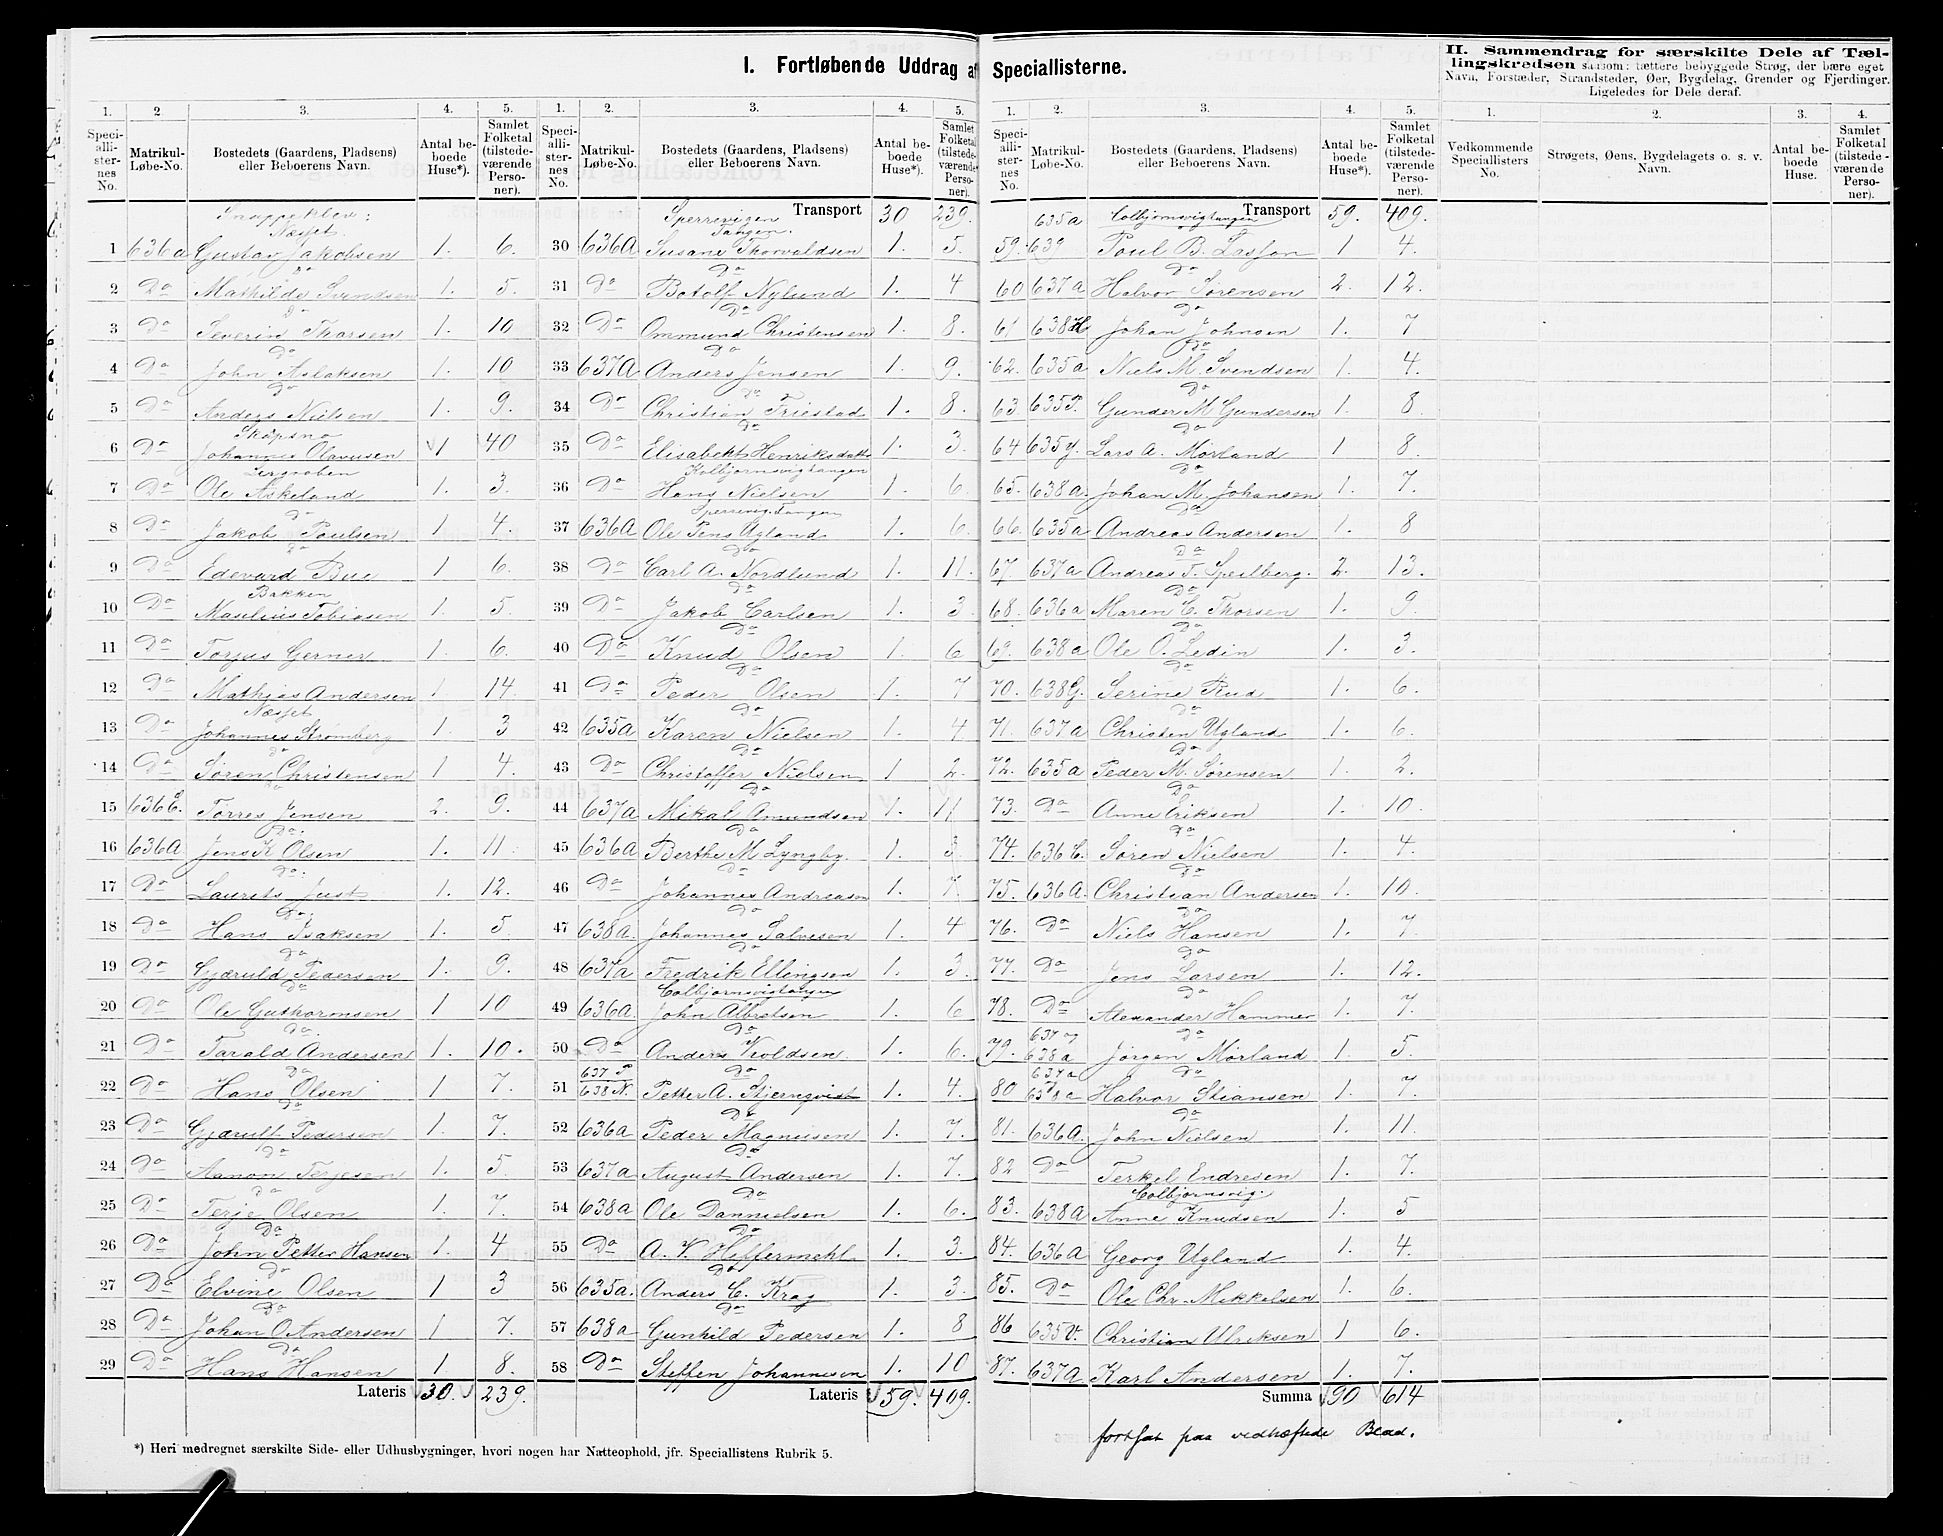 I. Fortløbende Uddrag af Speciallisterne.
II. Sammendrag for særskilte Dele af Tællingskredsen saasom: tættere bebyggede Strøg, der bære eget
Navn, Forstæder, Strandsteder, Øer, Bygdelag, Grender og Fjerdinger.
Ligeledes for Dele deraf.
1. 2 3. 4. 5.
Speciallisternes No. Matrikul-Løbe-No. Bostedets (Gaardens, Pladsens) eller Beboerens Navn. Antal beboede Huse*). Samlet Folketal (tilstedeværende Personer).
Næsset.
1 636a Gustav Jakobsen 1. 6.
Do
2 Do Mathilde Svendsen 1. 5.
Do
3 Do Severin Thorsen 1. 10
Do
4 Do John Aslaksen 1. 10
Do
5 Do Anders Nielsen 1. 9.
6 Do Johannes Olavusen 1 40
7 Do Ole Askeland 1. 3.
Do
8 Do Jakob Poulsen 1 4.
Do
9 Do Edevard Bue 1 6.
Bakken
10 Do Maulius Tobiasen 1. 5.
11 Do Torjus Gerner 1. 6.
12 Do Mathias Andersen 1 14.
Næsset
13 Do Johannes Strömberg 1. 3
Do
14 Do Sören Christensen 1 4.
Do
15 636C. Torres Jensen 2. 9.
Do
16 636A Jens K Olsen 1. 11
Do.
17 Do Laurits Just 1. 12.
Do.
18 Do Hans Isaksen 1. 5
Do
19 Do Gjæruld Pedersen 1. 9.
Do
20 Do Ole Guthormsen 1 10
Do.
21 Do Tarald Andersen 1. 10.
Do
22 Do Hans Olsen 1 7.
Do
23 Do Gjærult Pedersen 1. 7.
Do
24 Do Aanon Terjesen 1. 5
Do
25 Do Terje Olsen 1. 7.
Do
26 Do John Petter Hansen 1. 4
Do
27 Do Elvine Olsen 1 3
Do
28 Do Johan O. Andersen 1 7.
Do
29 Do Hans Hansen 1. 8.
Lateris 30. 239.
1. 2. 3. 4. 5.
Speciallisternes No. Matrikul-Løbe-No. Bostedets (Gaardens, Pladsens) eller Beboerens Navn. Antal beboede Huse*). Samlet Folketal (tilstedeværende Personer).
Sperrevigen Transport 30 239.
Tangen.
30 636A Susane Thorvaldsen 1. 5.
Do
31 Do Botolf Nylund 1. 4
Do
32 Do Ommund Christensen 1. 8.
Do
33 637A Anders Jensen 1. 9.
Do
34 Do Christian Friestad 1. 8.
Do
35 Do Elisabeth Henriksdatter 1. 3.
Kolbjornsvigtangen
36 Do Hans Nielsen 1. 6.
Sperrevig.Tangen
37 636A Ole Jens Ugland 1. 6.
Do
38 Do Carl A. Nordlund 1. 11.
Do
39 Do Jakob Carlsen 1. 3.
Do
40 Do Knud Olsen 1. 6
Do
41 Do Peder Olsen 1. 7
Do
42 635A Karen Nielsen 1. 4
Do
43 Do Christoffer Nielsen 1 2.
Do
44 637a Mikal Amundsen 1. 11
Do
45 636A Berthe M Lyngby. 1. 3
Do
46 Do Johannes Andreasen 1. 7.
Do
47 638A. Johannes Salvesen 1. 4
Do
48 637a Fredrik Ellingsen 1. 3.
Colbjornsvigtangen
49 636A. John Albretsen 1. 6
Do
50 Do Anders Knoldsen 1. 6.
Do
51 637 P 638 N. Petter A. Stjernqvist 1. 4.
Do
52 636a Peder Magnusen 1. 7.
Do
53 637a August Andersen 1. 7.
Do
54 638a Ole Dannielsen 1. 6.
Do
55 Do A. V. Heffermehl 1. 3.
Do
56 635a. Anders C. Krag 1. 3.
Do
57 638a Gunhild Pedersen 1. 8
58 Do Steffen Johannesen 1. 10
Lateris 59. 409.
1. 2. 3. 4. 5.
Speciallisternes No. Matrikul-Løbe-No. Bostedets (Gaardens, Pladsens) eller Beboerens Navn. Antal beboede Huse*). Samlet Folketal (tilstedeværende Personer).
635a Colbjornsvigtangen Transport 59. 409.
59. 639 Poul B. Lassen 1 4.
Do
60 637a Halvor Sörensen 2. 12.
Do
61 638H Johan Johnsen 1. 7
Do
62. 635a Niels M. Svendsen 1. 4.
Do
63. 635P. Gunder M Gundersen 1. 8.
Do
64 635y. Lars A. Mörland 1 8
Do
65. 638a. Johan M. Johansen 1. 7.
Do
66. 635a Andreas Andersen 1. 8
Do
67. 637a Andreas F. Speilberg. 2. 13.
Do
68. 636a Maren C. Thorsen 1. 9.
Do
69. 638a Ole O. Ledin 1. 3.
Do
70. 638G. Serine Rud 1. 6.
Do
71. 637a Christen Ugland 1. 6.
Do
72. 635a Peder M. Sörensen 1. 2.
Do
73. Do Anne Eriksen 1. 10.
Do
74. 636C. Sören Nielsen 1. 4.
Do
75. 636A. Christian Andersen 1. 10.
Do
76. Do Niels Hansen 1. 7.
Do
77. Do Jens Larsen 1. 12.
Do
78. Do Alexander Hammer 1. 7.
Do
79. 637 og 638a Jörgen Mörland 1. 5.
Do
80 637a Halvor Stiansen 1. 7.
Do
81. 636A. John Nielsen 1. 11.
82 Do Terkel Endresen 1. 7.
Colbjornsvig.
83. 638A Anne Knudsen 1. 5
84. 636A Georg Ugland 1. 4.
85. Do Ole Chr. Mikkelsen 1. 6.
86 635V. Christian Ulriksen 1 6.
87. 637A Karl Andersen 1. 7.
Summa 90 614
fortsat paa vedhæftede Blad.
1. 2. 3. 4.
Vedkommende Speciallisters No. Strøgets, Øens, Bygdelagets o. s. v. Navn. Antal beboede Huse. Samlet Folketal (tilstedeværende Personer).
*) Heri medregnet særskilte Side- eller Udhusbygninger, hvori nogen har Natteophold, jfr. Speciallistens Rubrik 5.